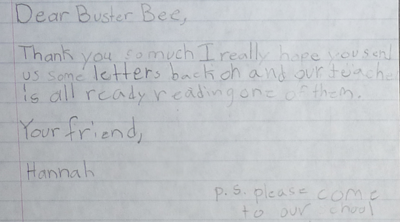 Dear Buster Bee,
Thank you so much I really hope you send
us some letters back oh and our teache
is all ready reading one of them.
Your friend,
Hannah
p.s. please come
to our chool